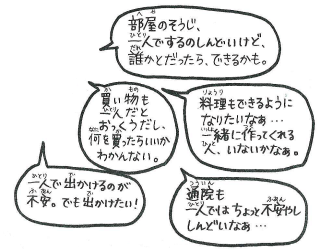 部屋のそうじ、
一人でするのしんどいけど、
誰かとだったら、できるかも。
買い物も
一人だと
おっくうだし、
何を買ったらいいか
わかんない。
料理もできるように
なりたいなぁ…
一緒に作ってくれる
人、いないかなぁ。
一人で出かけるのが
不安。でも出かけたい!
通院も
一人ではちょっと不安やし
しんどいなぁ…